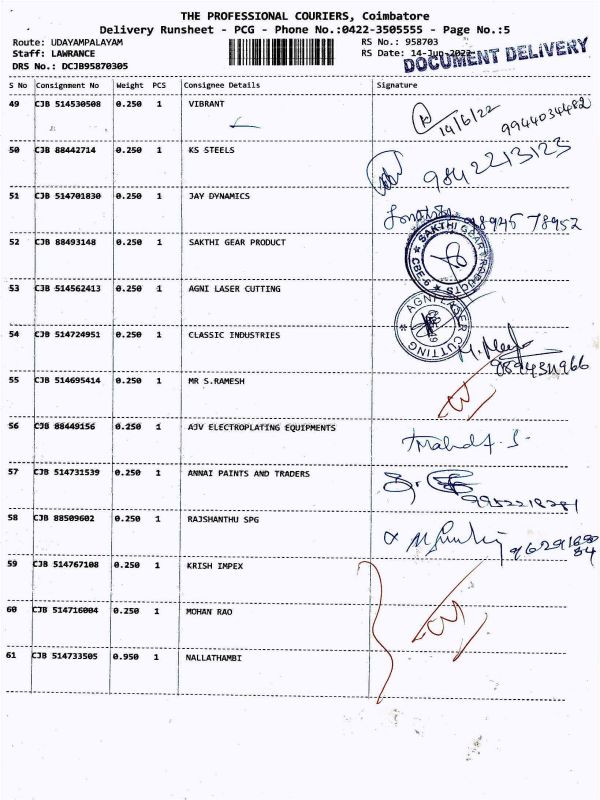 THE PROFESSIONAL COURIERS, Coimbatore
Delivery Runsheet - PCG - Phone No.:0422-3505555 - Page No.:5
Route: UDAYAMPALAYAM RS No.: 958703
Staff: LAWRANCE RS Date: 14-Jun-2022
DRS No.: DCJB95870305 DOCUMENT DELIVERY
S No Consignment No Weight PCS Consignee Details Signature
49 CJB 514530508 0.250 1 VIBRANT
14/6/22 9944034482
50 CJB 88442714 0.250 1 KS STEELS 9842213123
51 CJB 514701830 0.250 1 JAY DYNAMICS 98945 78952
52 CJB 88493148 0.250 1 SAKTHI GEAR PRODUCT
SAKTHI GEAR PRODUCTS CBE-6
53 CJB 514562413 0.250 1 AGNI LASER CUTTING
AGNI LASER CUTTING
54 CJB 514724951 0.250 1 CLASSIC INDUSTRIES
9894311966
55 CJB 514695414 0.250 1 MR S.RAMESH
56 CJB 88449156 0.250 1 AJV ELECTROPLATING EQUIPMENTS
57 CJB 514731539 0.250 1 ANNAI PAINTS AND TRADERS
9952218281
58 CJB 88509602 0.250 1 RAJSHANTHU SPG
59 CJB 514767108 0.250 1 KRISH IMPEX
60 CJB 514716004 0.250 1 MOHAN RAO
61 CJB 514733505 0.950 1 NALLATHAMBI